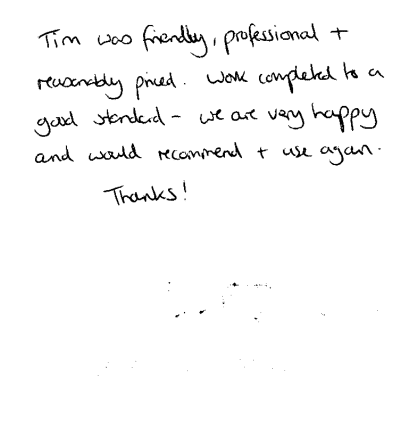 Tim was friendly, professional +
reasonably priced. Work completed to a
good standard - we are very happy
and would recommend + use again.
Thanks!